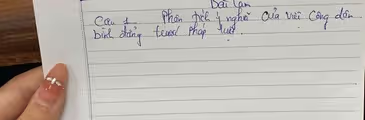 Bài làm
Câu 1 Phân tích ý nghĩa của việc Công dân
bình đẳng trước pháp luật.